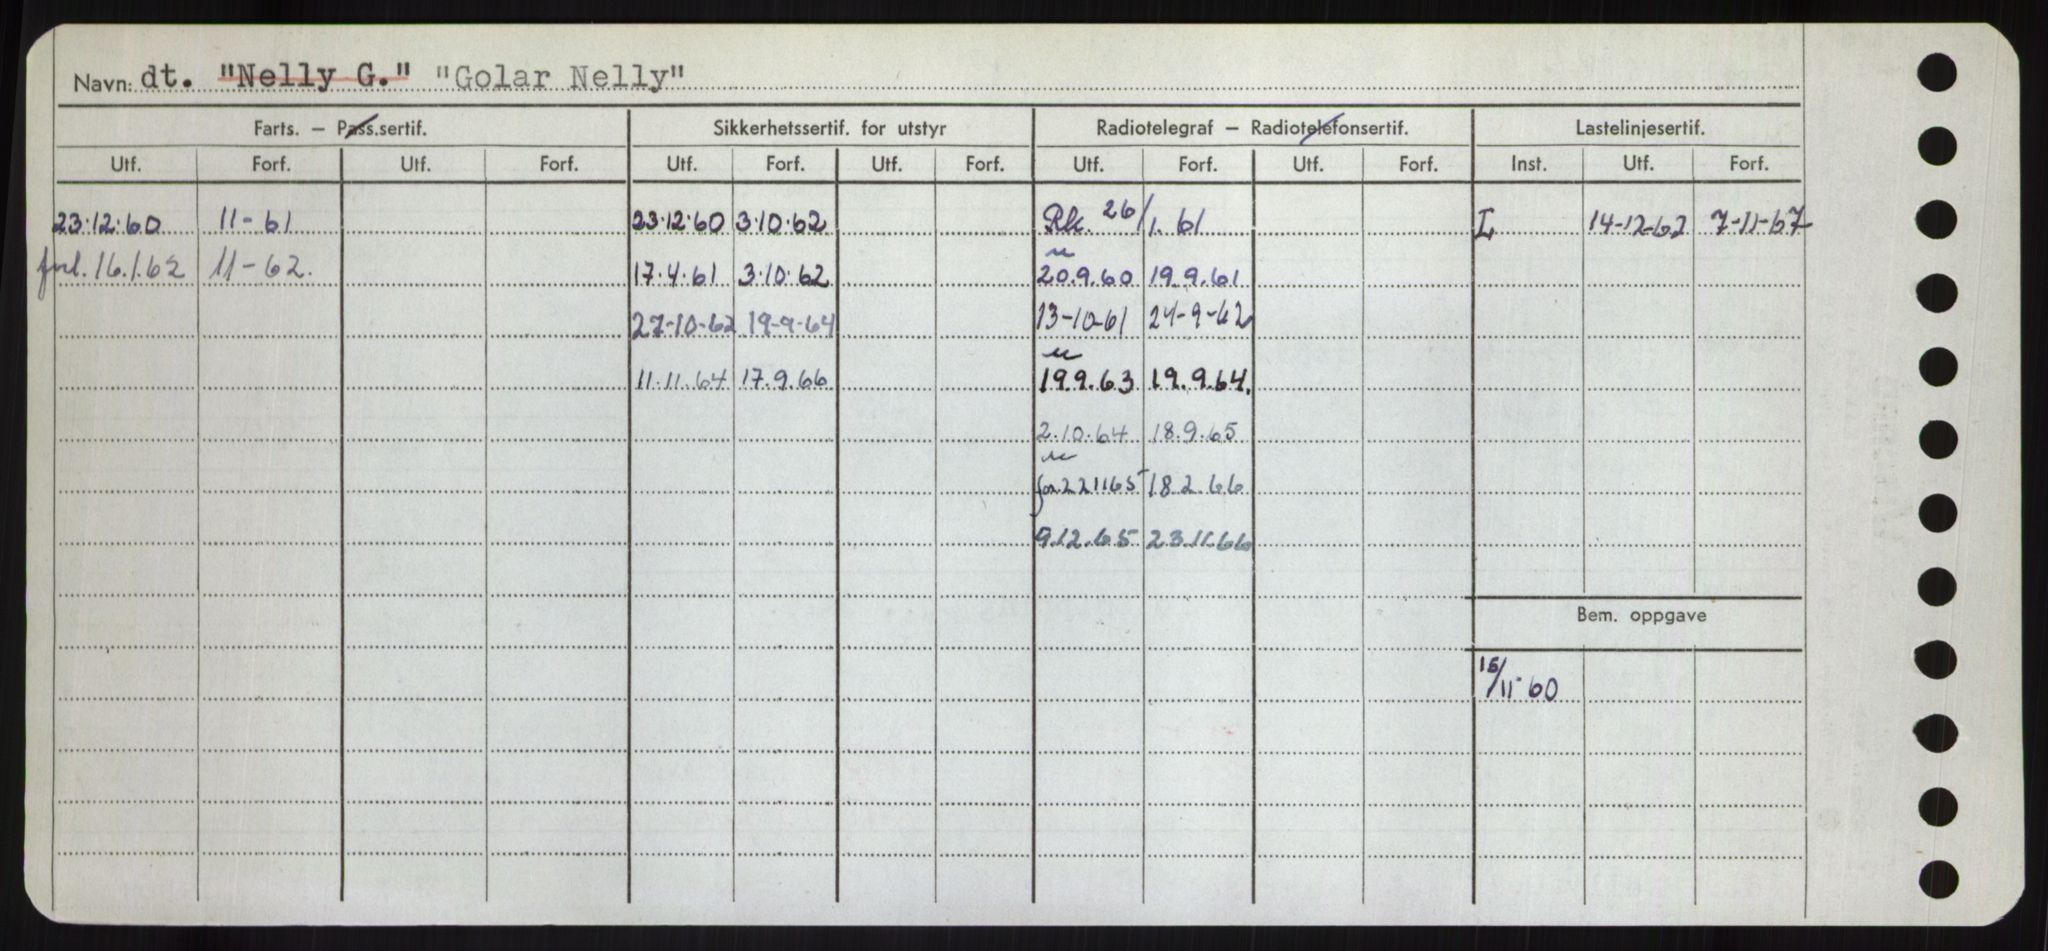 Navn: dt. "Nelly G." "Golar Nelly"
Farts. – Pass.sertif. Sikkerhetssertif. for utstyr Radiotelegraf – Radiotelefonsertif. Lastelinjesertif.
Utf. Forf. Utf. Forf. Utf. Forf. Utf. Forf. Utf. Forf. Utf. Forf. Inst. Utf. Forf.
23.12.60 11-61 23.12.60 3.10.62 Rk. 26/1.61 L 14-12-62 7-11-67
forl. 16.1.62 11-62. 17.4.61 3.10.62 20.9.60 19.9.61
27-10-62 19-9-64 13-10-61 24-9-62
11.11.64 17.9.66 19.9.63 19.9.64.
2.10.64 18.9.65
for. 221165 18.2.66
9.12.65 23.11.66
Bem. oppgave
15/11-60